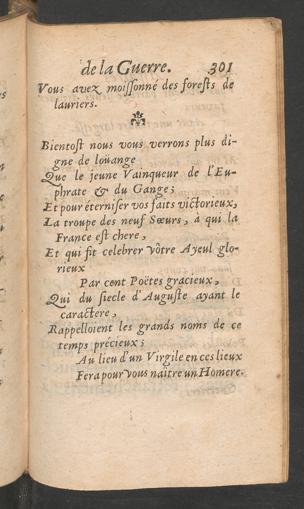 de la Guerre. 301
Vous avez moissonné des forests de
lauriers.
Bientost nous vous verrons plus di-
gne de loüange
Que le jeune Vainqueur de l'Eu-
phrate & du Gange;
Et pour éterniser vos faits victorieux,
La troupe des neuf Sœurs, à qui la
France est chere,
Et qui fit celebrer vôtre Ayeul glo-
rieux
Par cent Poëtes gracieux,
Qui du siecle d'Auguste ayant le
caractere,
Rappelloient les grands noms de ce
temps précieux;
Au lieu d'un Virgile en ces lieux
Fera pour vous naitre un Homere.